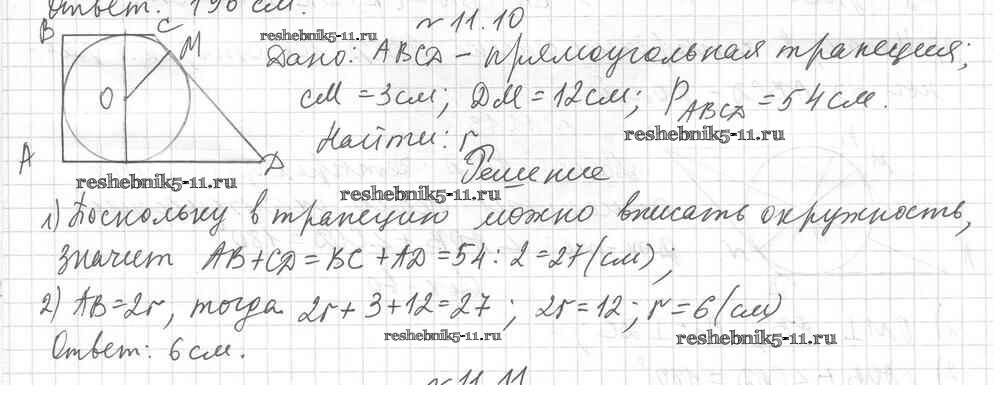 Ответ: 196 см.
№ 11.10
B C M
O
A D
reshebnik5-11.ru
Дано: ABCD - прямоугольная трапеция;
CM = 3 см; DM = 12 см; P_ABCD = 54 см.
reshebnik5-11.ru
Найти: r
Решение
reshebnik5-11.ru
reshebnik5-11.ru
1) Поскольку в трапецию можно вписать окружность,
значит AB + CD = BC + AD = 54 : 2 = 27 (см);
2) AB = 2r, тогда 2r + 3 + 12 = 27; 2r = 12; r = 6 (см)
reshebnik5-11.ru
reshebnik5-11.ru
Ответ: 6 см.
№ 11.11